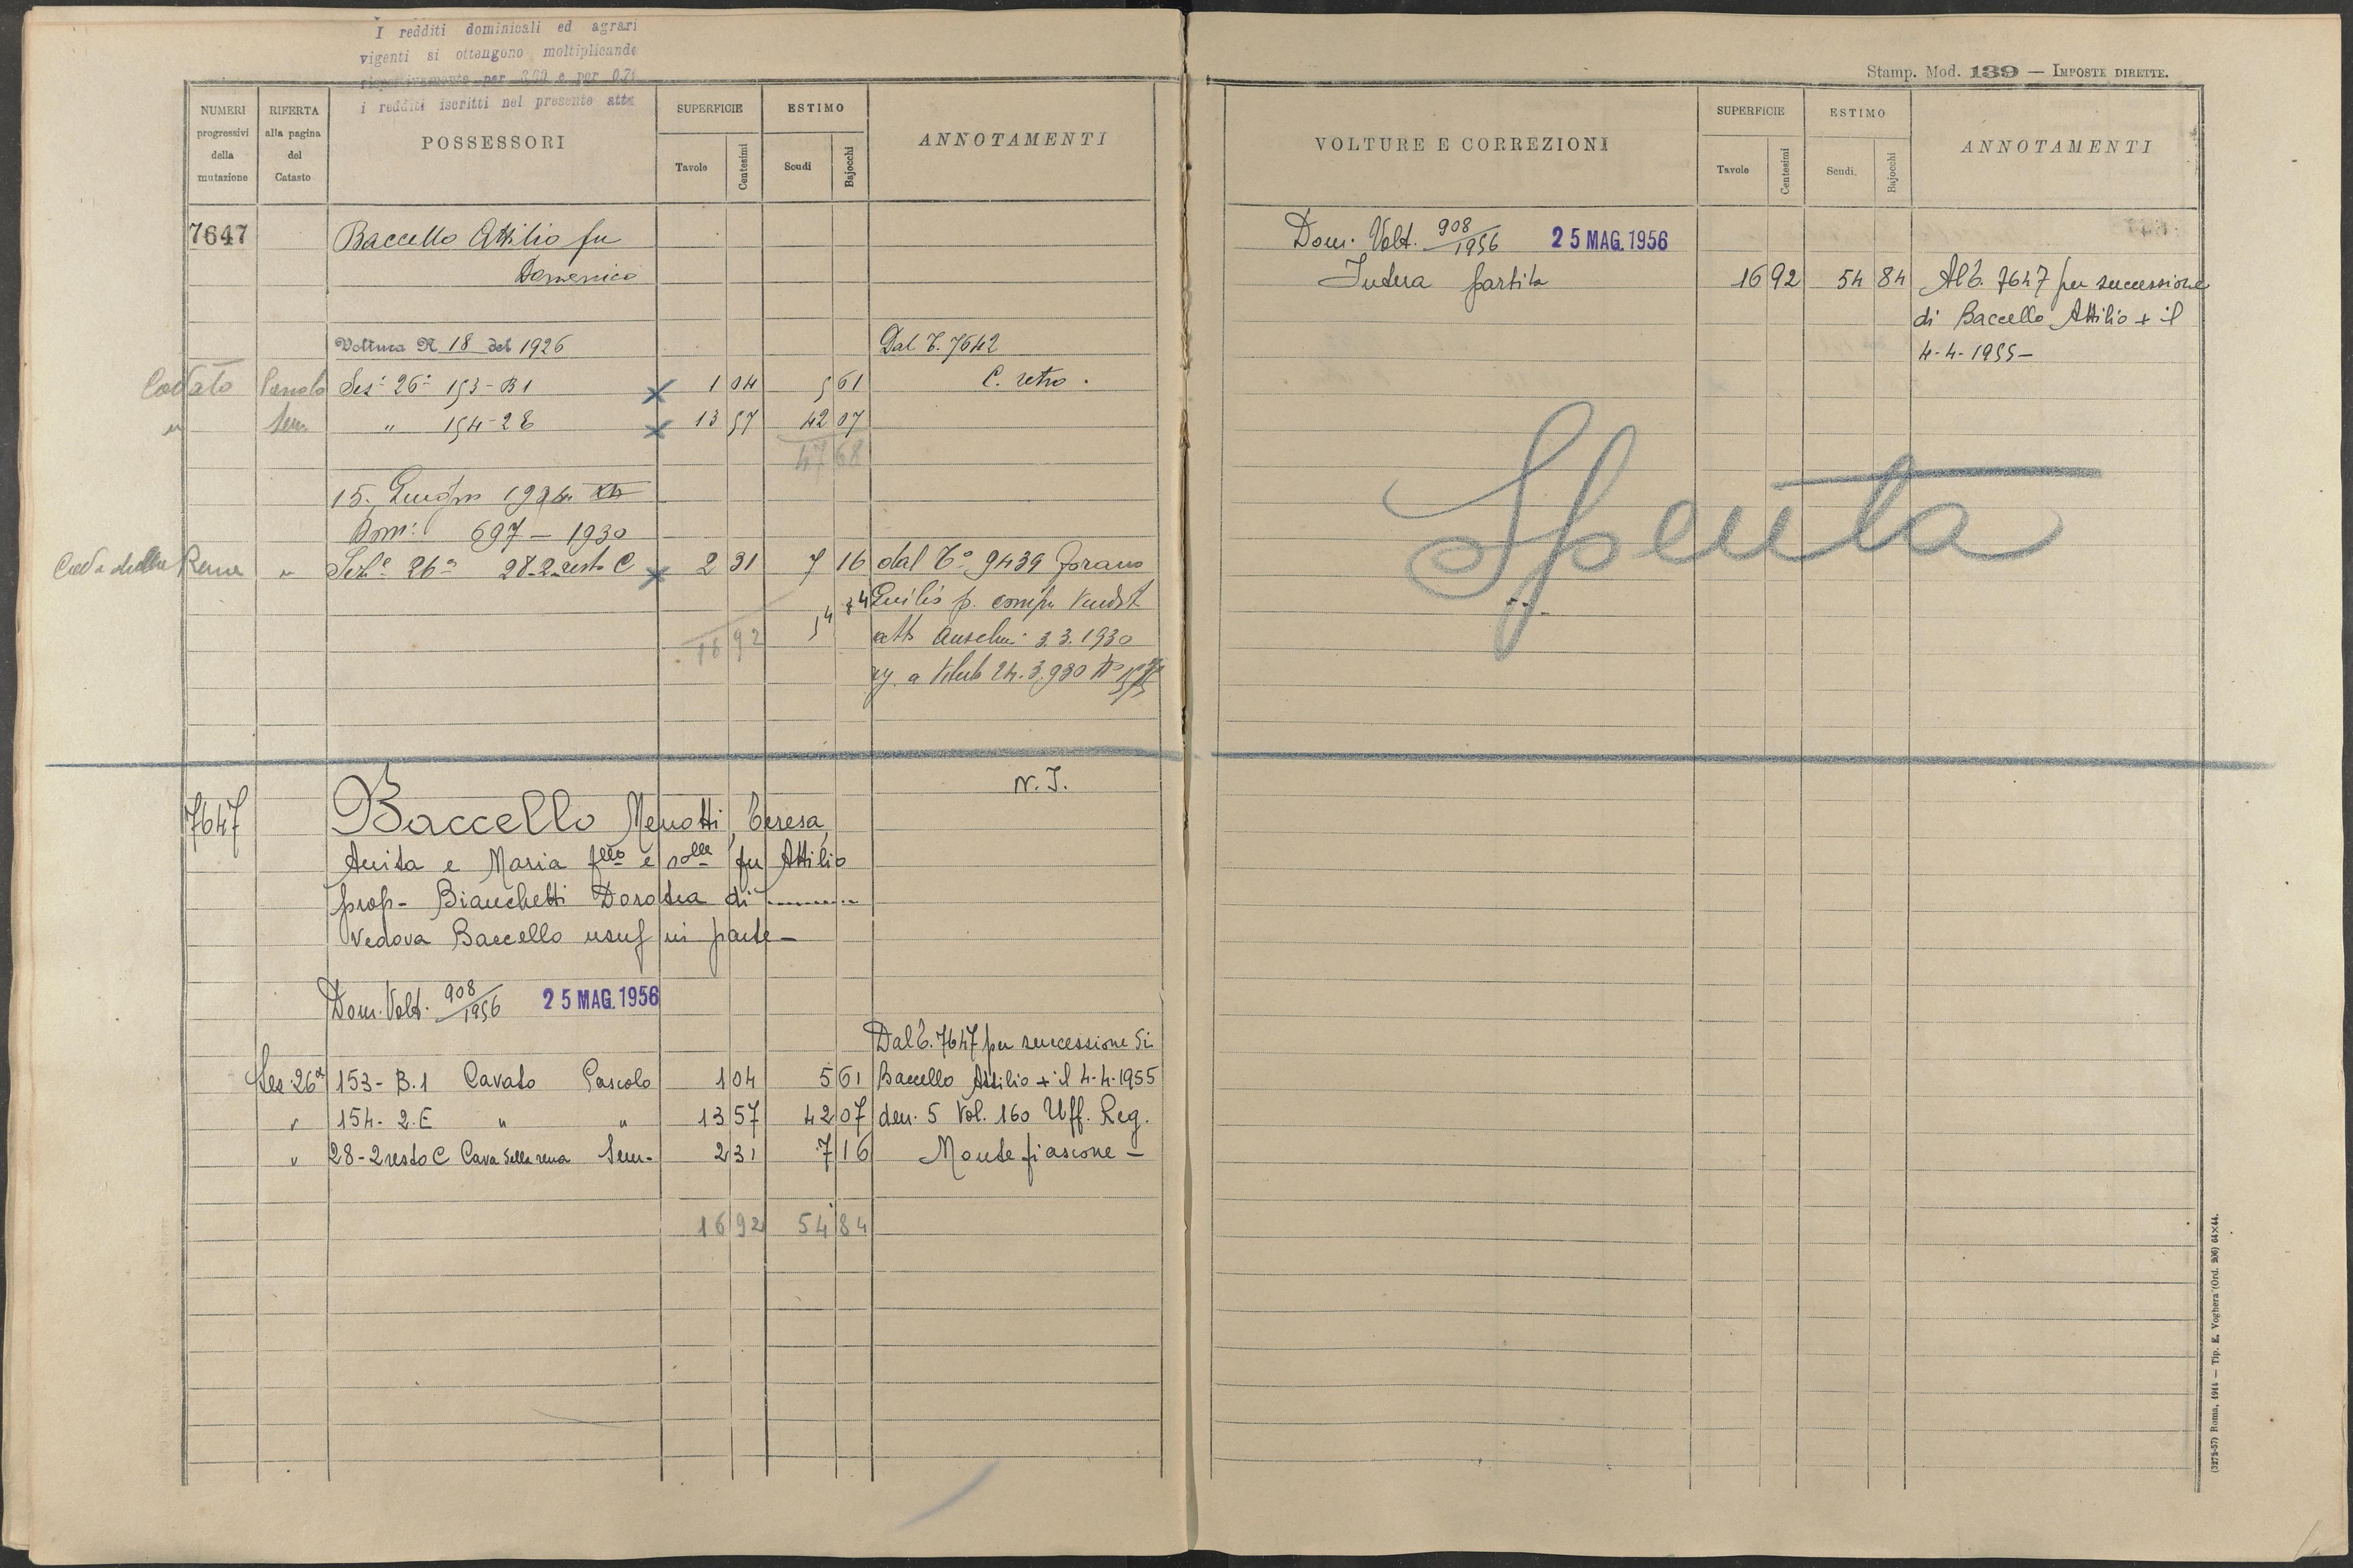 I redditi dominicali ed agrari
vigenti si ottengono moltiplicando
rispettivamente per e per
i redditi iscritti nel presente atto
NUMERI progressivi della mutazione
RIFERTA alla pagina del Catasto
POSSESSORI
SUPERFICIE
Tavole Centesimi
ESTIMO
Scudi Bajocchi
ANNOTAMENTI
7647 Baccello Attilio fu
Domenico
Voltura N 18 del 1926 Dal T. 7642
Cavato Pascolo Sez. 26ª 153-B1 x 1 04 5 61 C. retro.
" Sem. " 154-2E x 13 57 42 07
47 68
15. 1934 XII
Dom: 697 - 1930
Cava della Rena " Sez.e 26ª 28-2 resto C x 2 31 7 16 dal T.° 9439
54 84 p. compra
16 92 atto Anselmi 3.3.1930
24.3.930
N. I.
7647 Baccello Menotti, Teresa,
Anita e Maria fllo e solle fu Attilio
prop- Bianchetti Dorotea di ........
Vedova Baccello usuf in parte -
Dom. Volt. 908/1956 25 MAG. 1956
Dal T. 7647 per successione di
Sez. 26ª 153- B.1 Cavato Pascolo 1 04 5 61 Baccello Attilio + il 4-4-1955
" 154- 2.E " " 13 57 42 07 den. 5 Vol. 160 Uff. Reg.
" 28-2 resto C Cava della rena Sem- 2 31 7 16 Montefiascone -
16 92 54 84
Stamp. Mod. 139 — IMPOSTE DIRETTE.
VOLTURE E CORREZIONI
SUPERFICIE
Tavole Centesimi
ESTIMO
Scudi. Bajocchi
ANNOTAMENTI
Dom. Volt. 908/1956 25 MAG. 1956
Intera partita 16 92 54 84 Al T. 7647 per successione
di Baccello Attilio + il
4-4-1955-
Spenta
(3273-57) Roma, 1944 — Tip. E. Voghera (Ord. 206) 64×44.